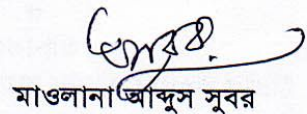 মাওলানা আব্দুস সুবুর